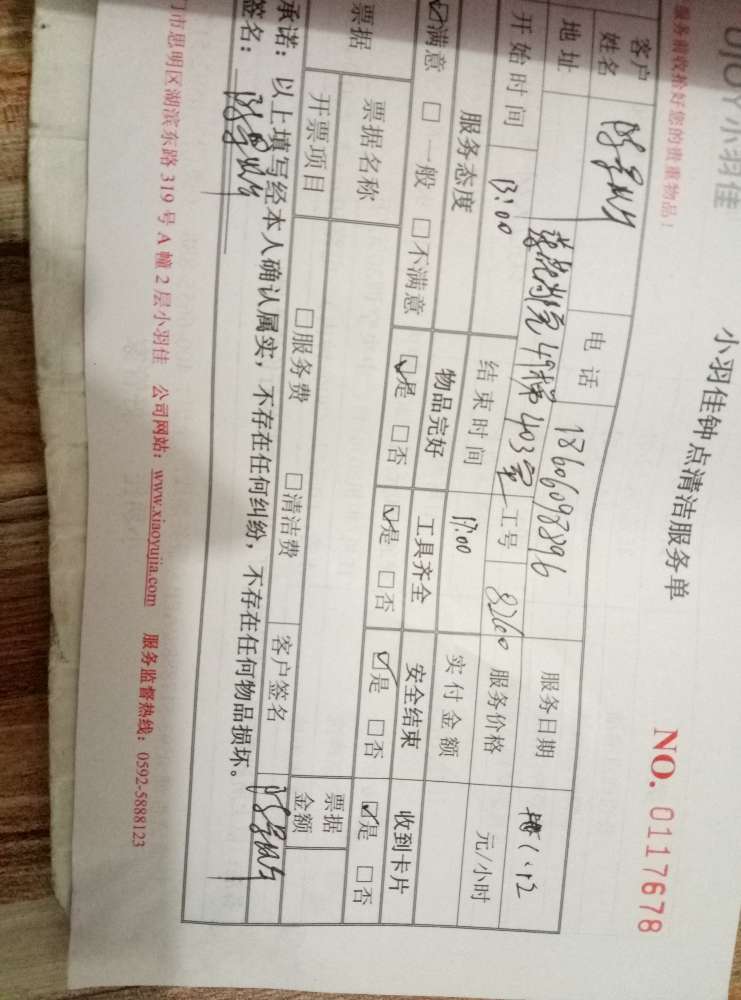 UJOY小羽佳
小羽佳钟点清洁服务单
服务前收拾好您的贵重物品！
NO. 0117678
客户姓名 电话 18606098896 服务日期
地址 49梯403室 工号 8260 服务价格 元/小时
开始时间 13:00 结束时间 17:00 实付金额
服务态度 物品完好 工具齐全 安全结束 收到卡片
☑满意 □一般 □不满意 ☑是 □否 ☑是 □否 ☑是 □否 ☑是 □否
票据 票据名称 票据金额
开票项目 □服务费 □清洁费 客户签名
承诺：以上填写经本人确认属实，不存在任何纠纷，不存在任何物品损坏。
签名：
门市思明区湖滨东路319号A幢2层小羽佳 公司网站：www.xiaoyujia.com 服务监督热线：0592-5888123